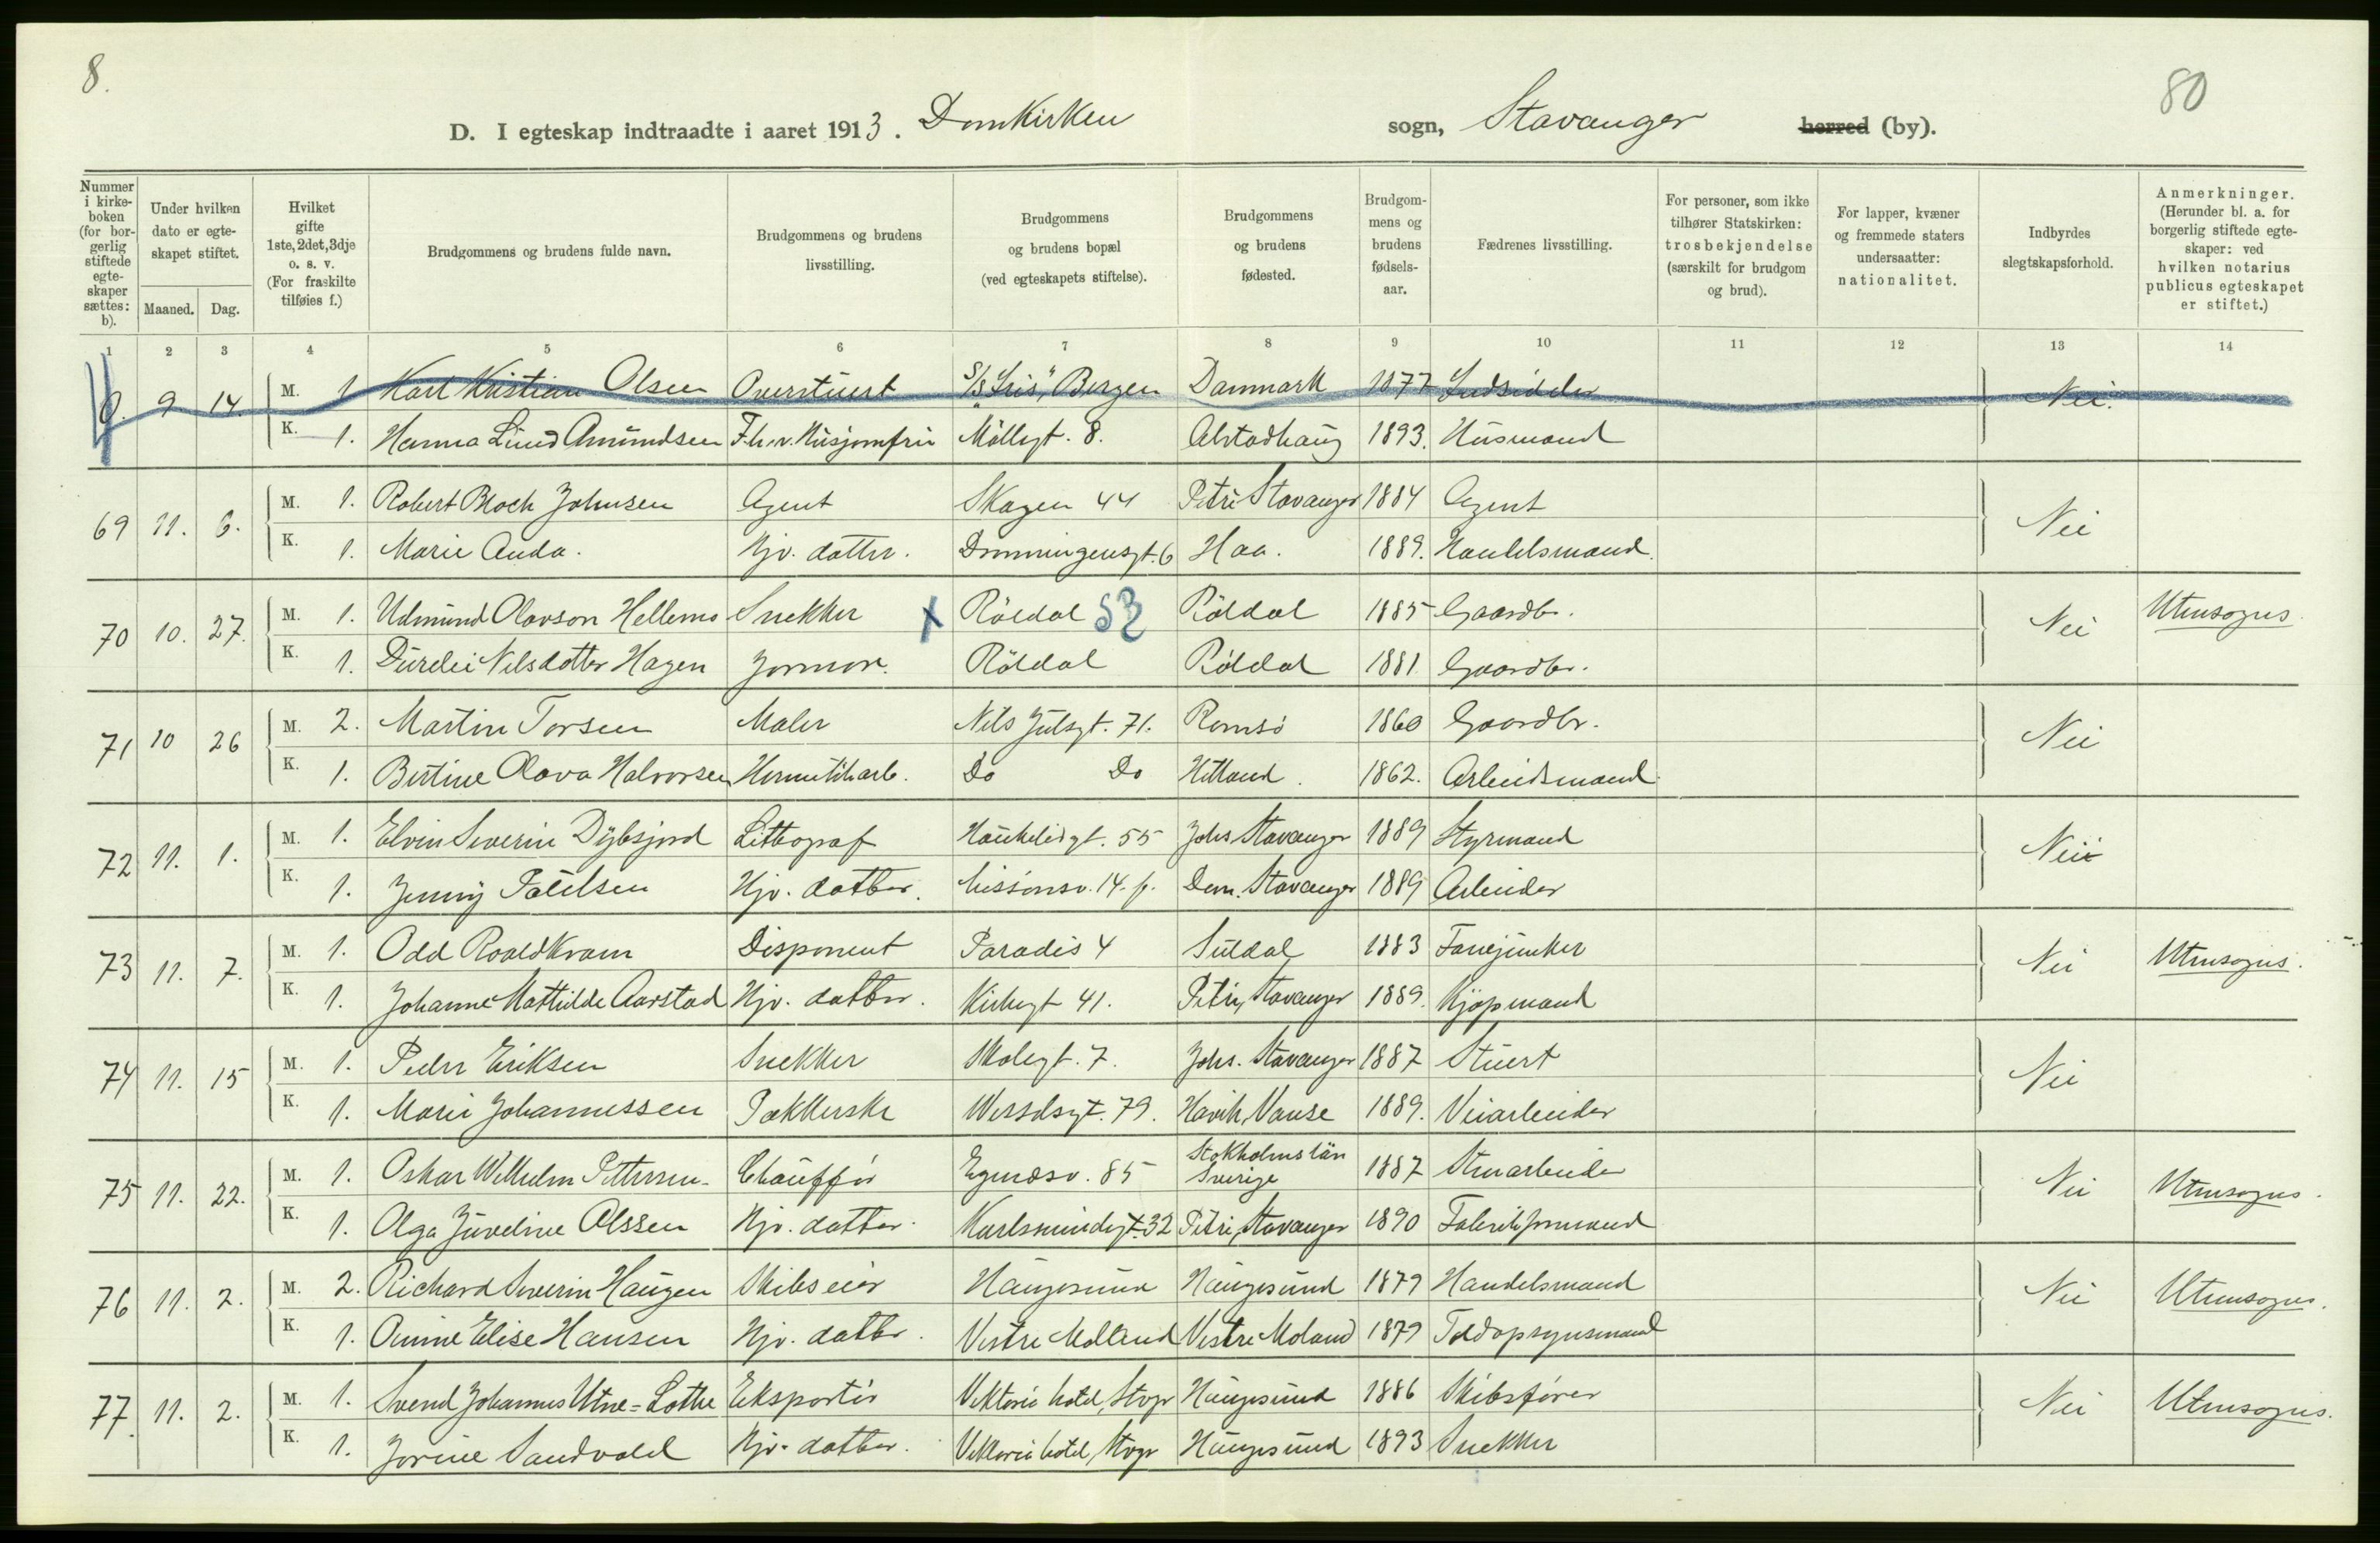 8.
80
D. I egteskap indtraadte i aaret 1913. Domkirken sogn, Stavanger herred (by).
Nummer i kirke-boken (for bor-gerlig stiftede egte-skaper sættes: b).
Under hvilken dato er egte-skapet stiftet.
Maaned. Dag.
Hvilket gifte 1ste, 2det, 3dje o. s. v. (For fraskilte tilføies f.)
Brudgommens og brudens fulde navn.
Brudgommens og brudens livsstilling.
Brudgommens og brudens bopæl (ved egteskapets stiftelse).
Brudgommens og brudens fødested.
Brudgom-mens og brudens fødsels-aar.
Fædrenes livsstilling.
For personer, som ikke tilhører Statskirken: trosbekjendelse (særskilt for brudgom og brud).
For lapper, kvæner og fremmede staters undersaatter: nationalitet.
Indbyrdes slegtskapsforhold.
Anmerkninger. (Herunder bl. a. for borgerlig stiftede egte-skaper: ved hvilken notarius publicus egteskapet er stiftet.)
1 2 3 4 5 6 7 8 9 10 11 12 13 14
9 14 M. 1 Karl Kristian Olsen Overstuert S/S "Iris", Bergen Danmark 1877 Indsidder Nei.
K. 1. Hanna Lund Amundsen F.h.v. Husjomfru Møllegt. 8. Alstadhaug 1893. Husmand
69 11. 6. M. 1. Robert Bloch Johnsen Agent Skagen 44 Petri Stavanger 1884 Agent Nei
K. 1. Marie Anda. Hjv. datter. Dronningensgt. 6 Haa. 1889. Handelsmand.
70 10. 27. M. 1. Udmund Olavson Hellemo Snekker x Röldal 53 Röldal 1885 Gaardbr. Nei Utensogns.
K. 1. Durdei Nilsdotter Hagen Jormor. Röldal Röldal 1881 Gaardbr.
71 10 26 M. 2. Martin Torsen Maler Nils Julsgt. 71. Romsö 1860 Gaardbr. Nei
K. 1. Bertine Olava Halvorsen Hermetikarb. Do Do Hitland. 1862. Arbeidsmand.
72 11. 1. M. 1. Elvin Severin Dybsjord Littograf Haukeligt. 55 Johs Stavanger 1889 Styrmand Nei
K. 1. Jenny Poulsen Hjv. datter. Missionsv. 14. Dom. Stavanger 1889 Arbeider
73 11. 7. M. 1. Odd Roald Kvam Disponent Paradis 4 Suldal 1883 Fanejunker Nei Utensogns.
K. 1. Johanne Mathilde Aarstad Hjv. datter. Kirkegt 41. Petri, Stavanger 1889. Kjøpmand
74 11. 15 M. 1. Peder Eriksen Snekker Skolegt. 7. Johs. Stavanger 1887 Stuert Nei
K. 1. Marie Johannessen Pakkerske Wesselsgt. 79. Havik, Vanse 1889. Veiarbeider
75 11. 22. M. 1. Oskar Wilhelm Pettersen Chauffør Egenesv. 85 Stokholms län Sverige 1887 Stenarbeider Nei Utensogns.
K. 1. Olga Juveline Olssen Hjv. datter. Karlsmindegt. 32 Petri, Stavanger 1890 Fabrikformand
76 11. 2. M. 2. Richard Severin Haugen Skibseier Haugesund Haugesund 1879 Handelsmand Nei Utensogns.
K. 1. Amine Elise Hansen Hjv. datter. Vestre Molland Vestre Moland 1879 Toldopsynsmand
77. 11. 2. M. 1. Svend Johannes Utne=Lothe Eksportør Viktoria hotel, Stvgr Haugesund 1886 Skibsfører Nei Utensogns.
K. 1. Jorine Sandvold Hjv. datter. Viktoria hotel, Stvgr Haugesund 1893 Snekker